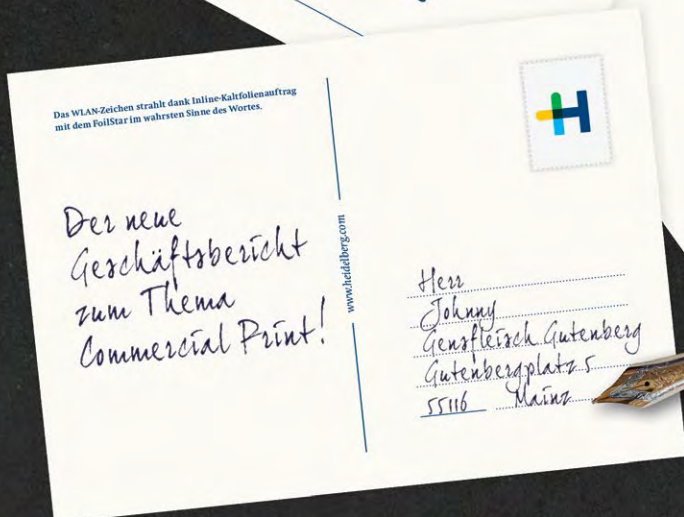 Das WLAN-Zeichen strahlt dank Inline-Kaltfolienauftrag
mit dem FoilStar im wahrsten Sinne des Wortes.
Der neue
Geschäftsbericht
zum Thema
Commercial Print!
www.heidelberg.com
H
Herr
Johnny
Gensfleisch Gutenberg
Gutenbergplatz 5
55116 Mainz